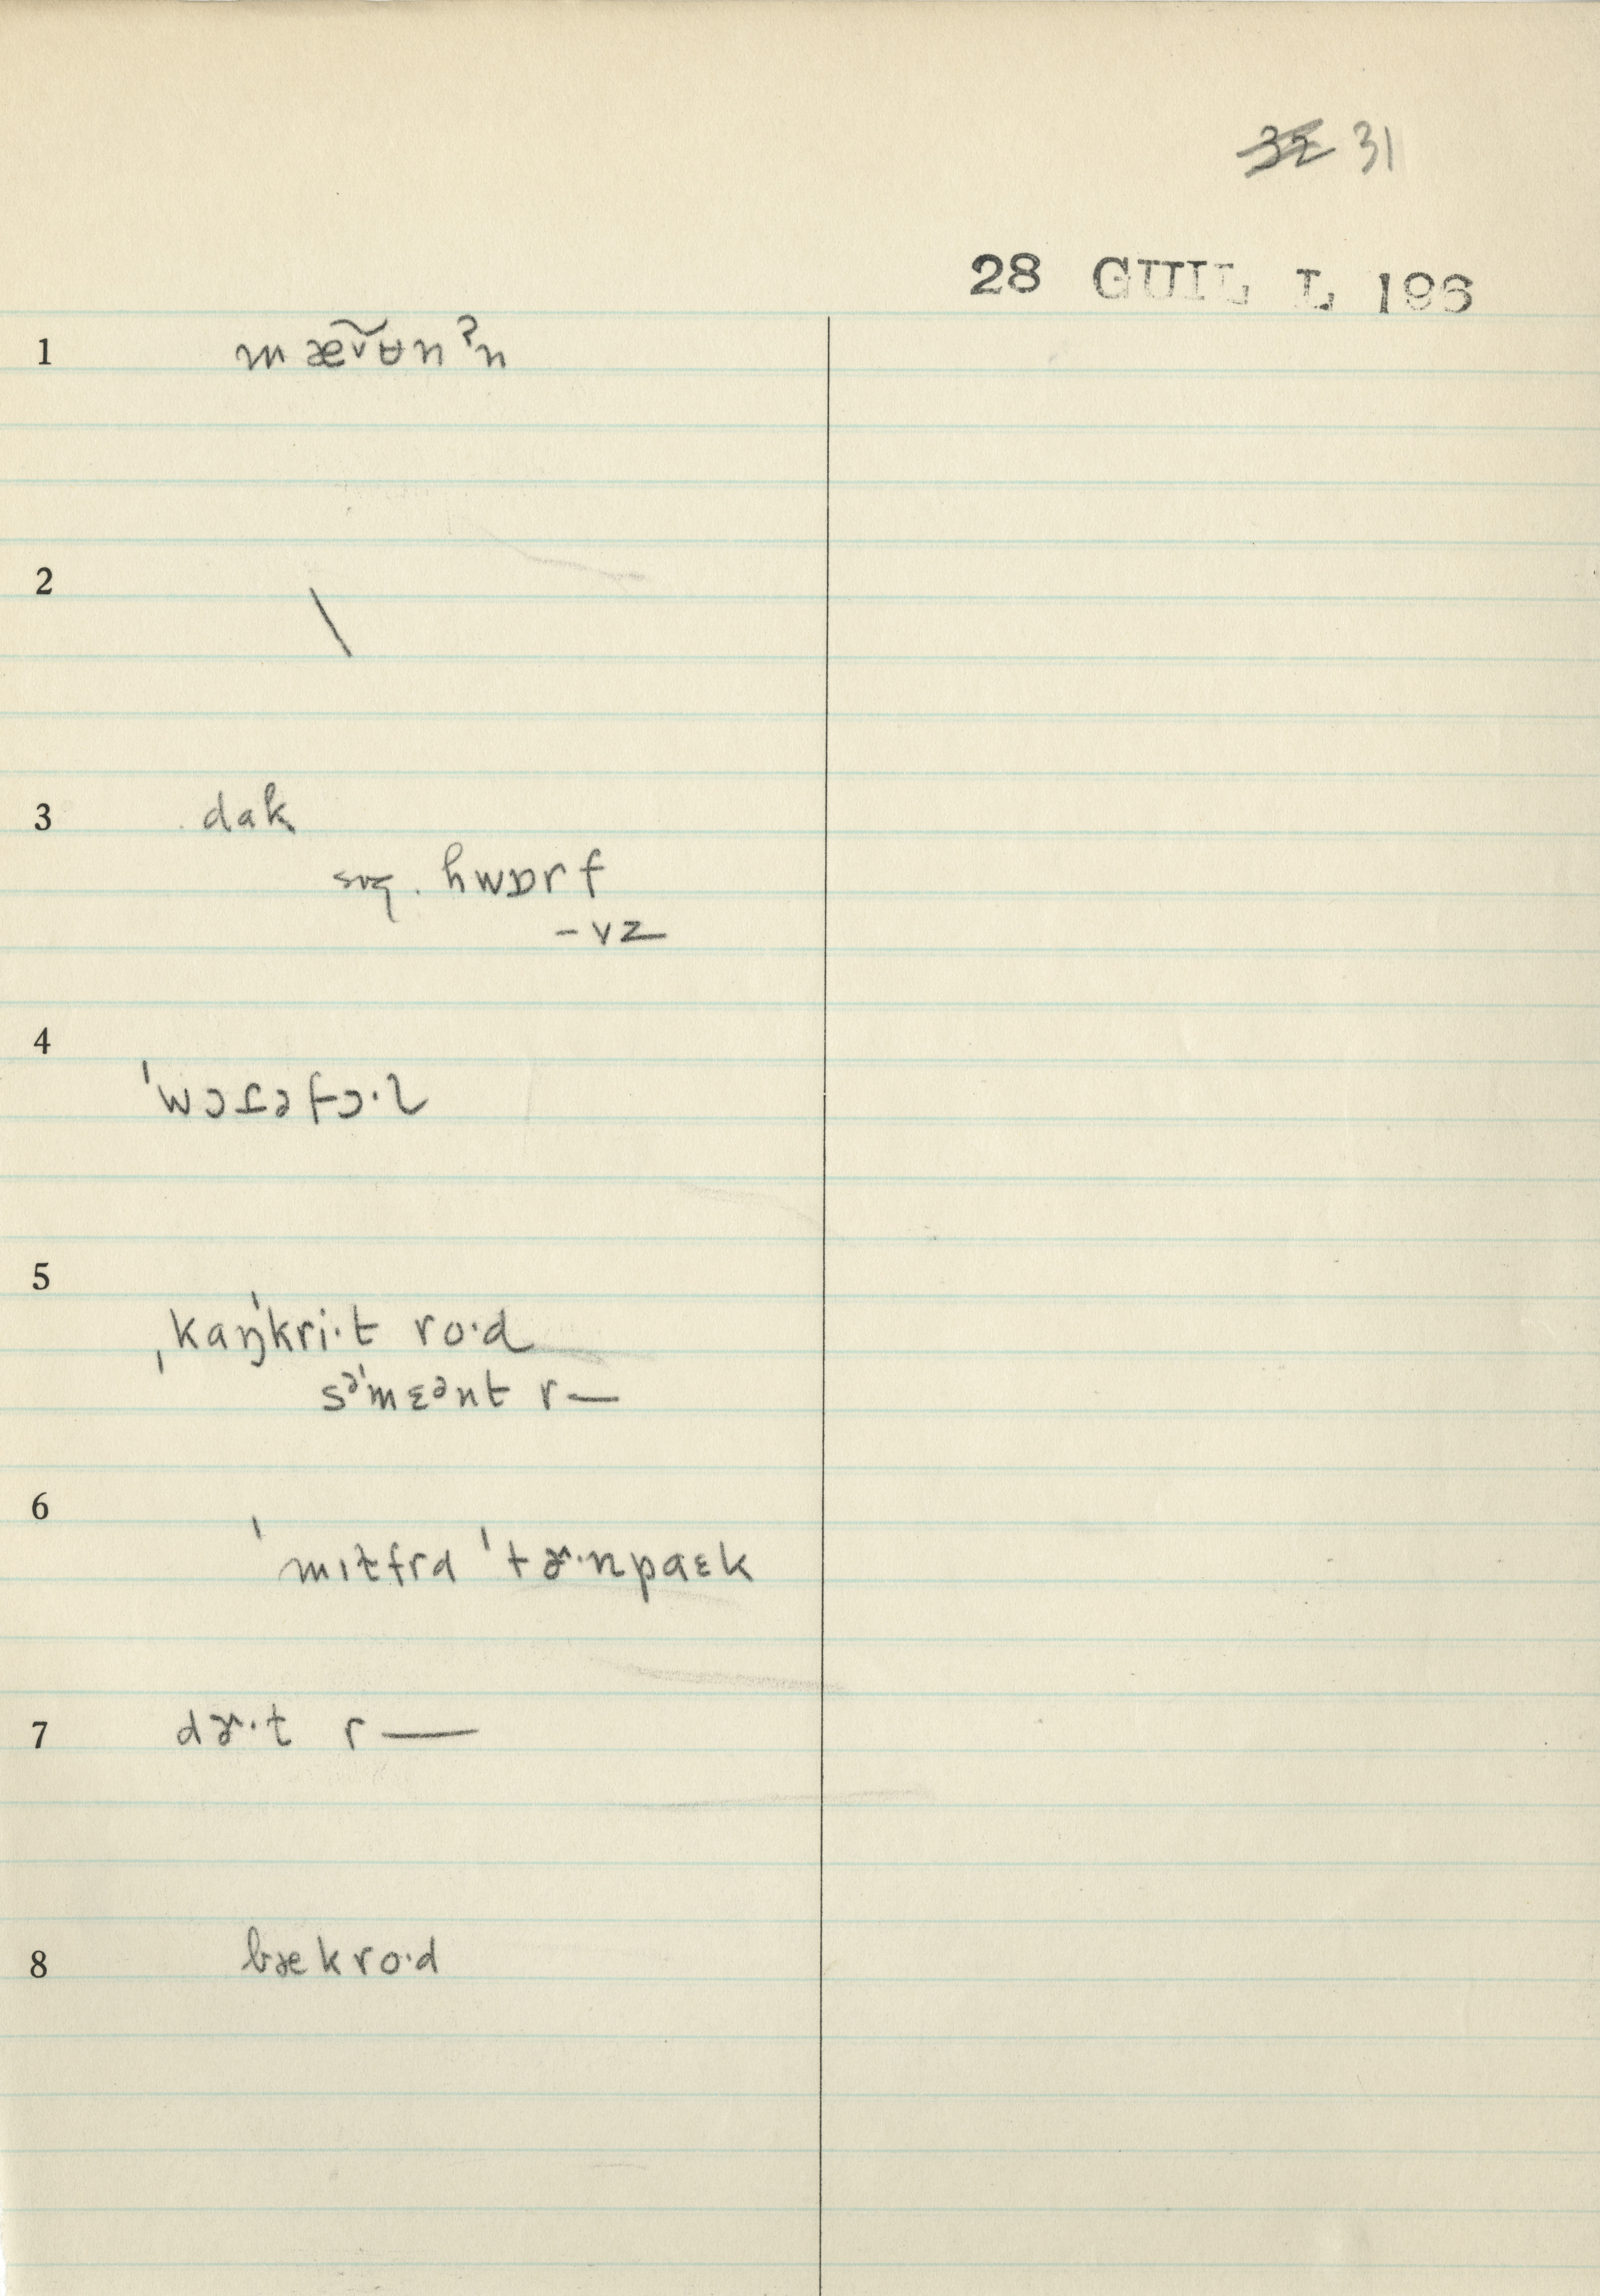 32 31
28 GUIL L 196
1 mæ̃ʉnˀn
2 \
3 dak
sug. hwɒrf
-vz
4 ˈwɔɾəfɔ·l
5 ˌkaŋˈkri·t ro·d
səˈmɛənt r—
6 ˈmɪtfrd ˈtɚ·npaɛk
7 dɚ·t r—
8 bækro·d